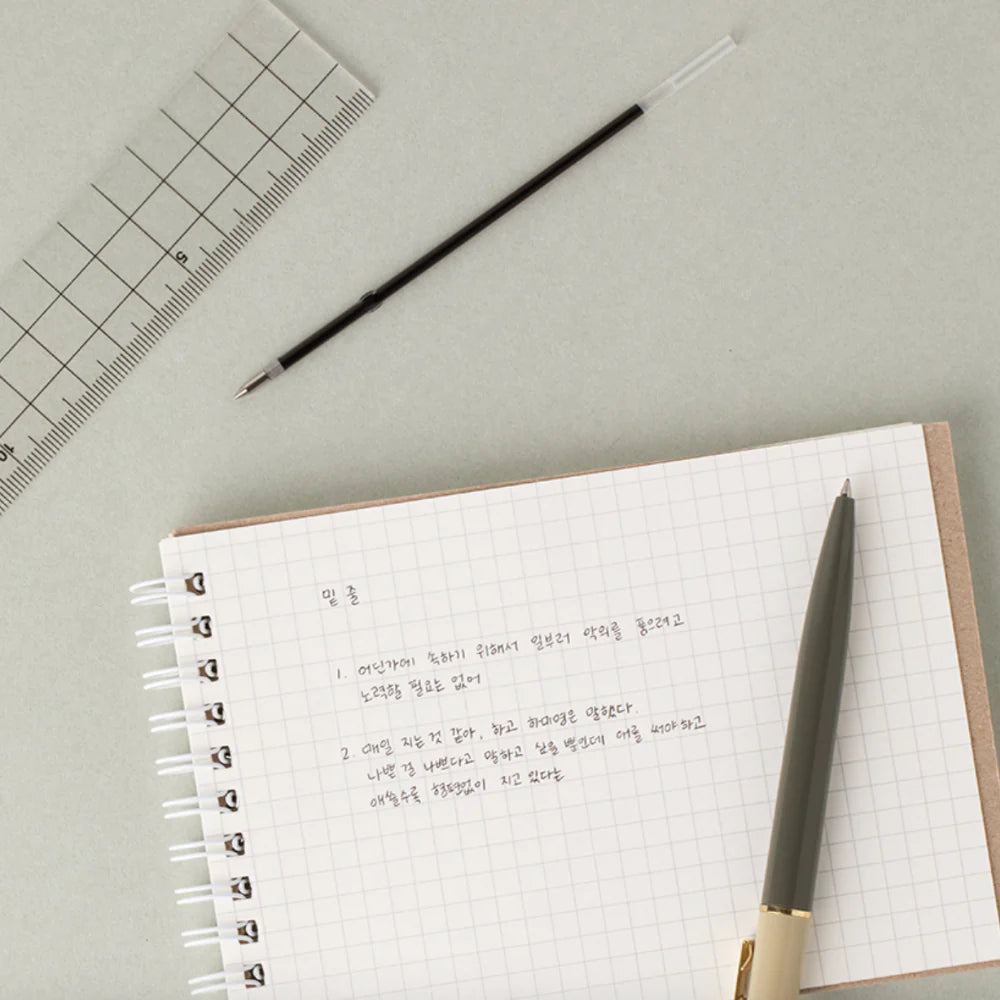 5
10
밑줄
1. 어딘가에 속하기 위해서 일부러 악의를 품으려고
노력할 필요는 없어
2. 매일 지는 것 같아, 하고 하미영은 말했다.
나쁜 걸 나쁘다고 말하고 싶을 뿐인데 애를 써야 하고
애쓸수록 형편없이 지고 있다는